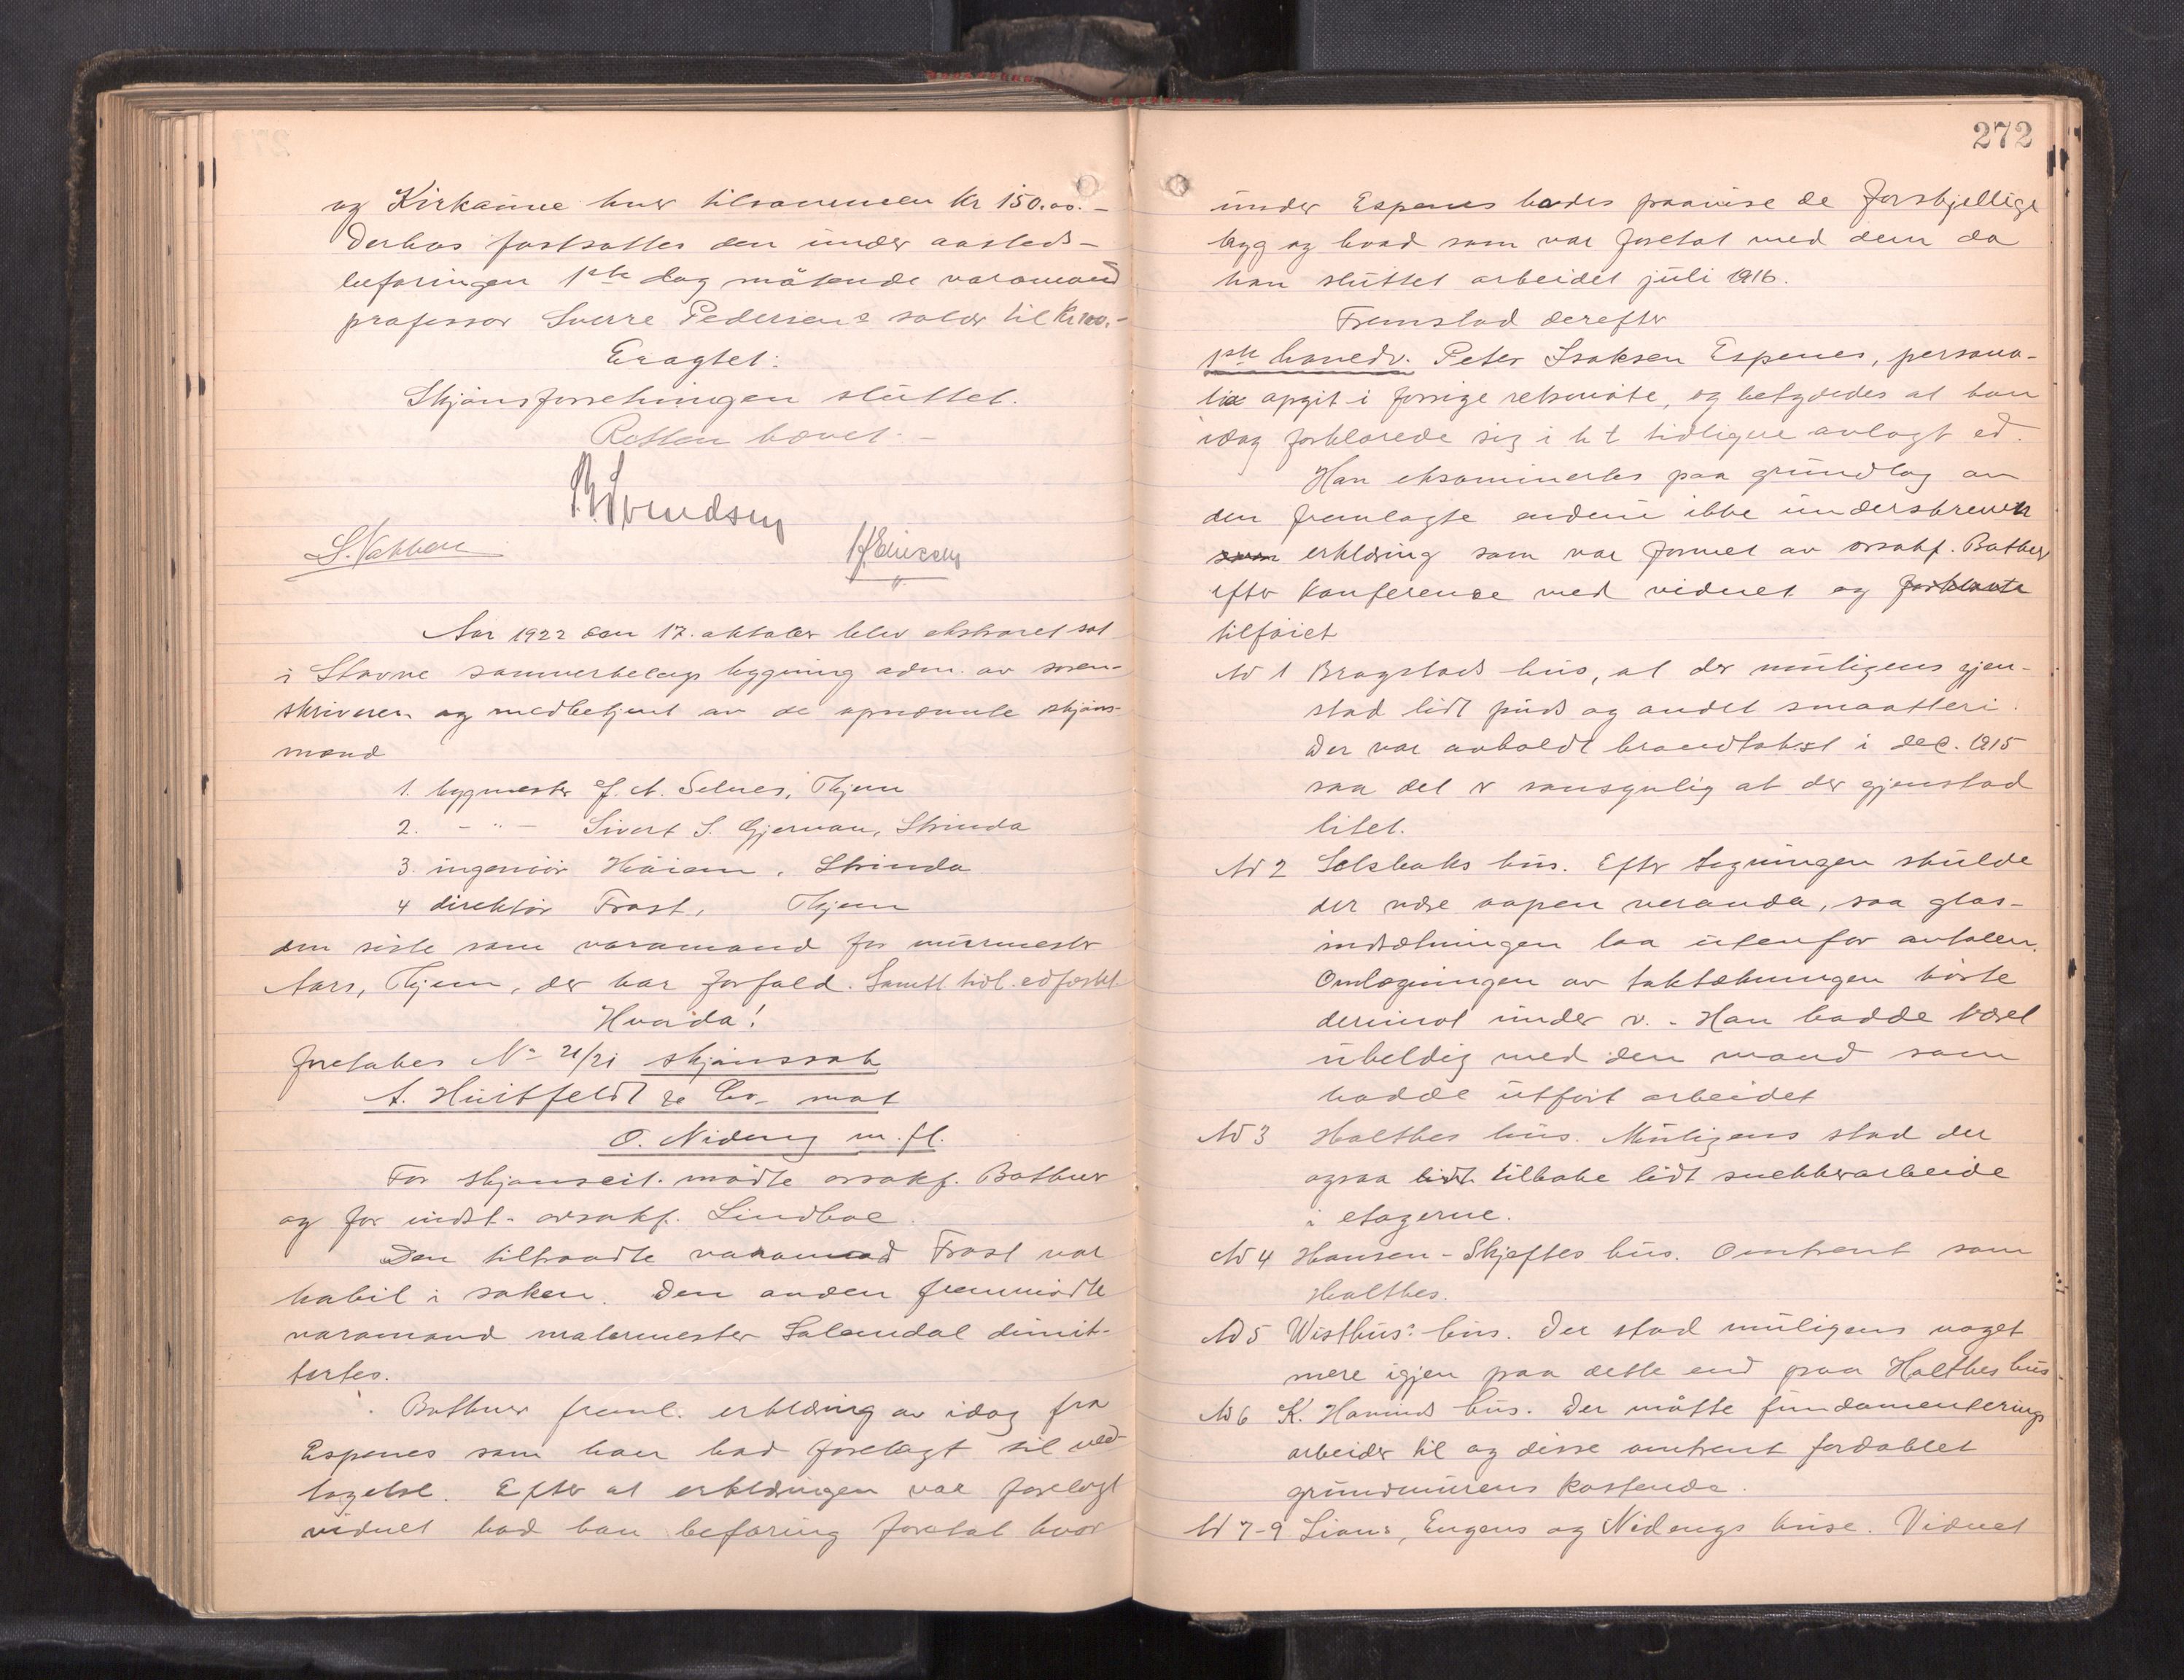 og Kirkaune hver tilsammen Kr 150.00.-
Derhos fastsattes den under aasteds-
befaringen 1ste dag møtende varamand
professor Sverre Pedersens salær til Kr 100.-
Eragtet:
Skjønsforretningen sluttet.
Retten hævet.-
Svendsen
Aar 1922 den 17. oktober blev ekstraret sat
i Stavne samverbelags bygning adm. av soren-
skriveren og medbetjent av de opnævnte skjøns-
mænd
1. bygmester J. A. Selnes, Thjem
2. - " - Sivert S. Gjervan, Strinda
3. ingeniør Høiem, Strinda
4 direktør Frost, Thjem
den siste som varamand for murmester
Aars, Thjem, der har forfald. Samtl tidl. edfæstet
Hvorda!
foretakes No 21/21 skjønssak
A. Huitfeldt & Co. mot
O. Nideng m. fl.
For skjønscit. mødte orsakf. Bøthner
og for indst. orsakf. Lindboe.
Den tiltraadte varamand Frost var
habil i saken. Den anden fremmødte
varamand malermester Solemdal dimit-
tertes.
Bøthner freml. erklæring av idag fra
Espenes som han bad forelagt til ved-
tagelse. Efter at erklæringen var forelagt
vidnet bad han befaring foretat hvor
272
under Espenes bedes paavise de forskjellige
bygg og hvad som var foretat med dem da
han sluttet arbeidet juli 1916.
Fremstod derefter
1ste hovedv. Peter Isaksen Espenes, persona-
lia opgit i forrige retsmøte, og betydedes at han
idag forklarede sig i h t tidligere avlagt ed.
Han eksaminertes paa grundlag av
den fremlagte endnu ikke underskreven
som erklæring som var formet av orsakf. Bøthner
efter konference med vidnet og forklarte
tilføiet
Ad 1 Bragstads hus, at der muligens gjen-
stod lidt puds og andet smaatteri.
Der var avholdt brandtakst i dec. 1915
saa det er sansynlig at der gjenstod
litet.
Ad 2 Selsbaks hus. Efter tegningen skulde
der være aapen veranda, saa glas-
indsætningen laa utenfor avtalen.
Omlægningen av taktækningen hørte
derimot under v. - Han hadde været
uheldig med den mand som
hadde utført arbeidet
Ad 3 Holthes hus. Muligens stod der
ogsaa lidt tilbake lidt snekkerarbeide
i etagerne.
Ad 4 Hansen-Skjeftes hus. Omtrent som
Holthes.
Ad 5 Wisthus' hus. Der stod muligens noget
mere igjen paa dette end paa Holthes hus
Ad 6 K. hus. Der måtte fundamenterings
arbeider til og disse omtrent fordoblet
grundmurens kostende.
Ad 7-9 Lians, Engens og Nidengs huse. Vidnet